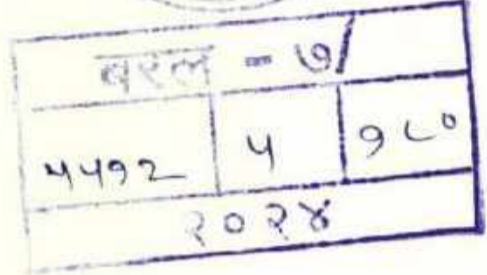 बरल - ७/
५५१२ ५ १८०
२०२४